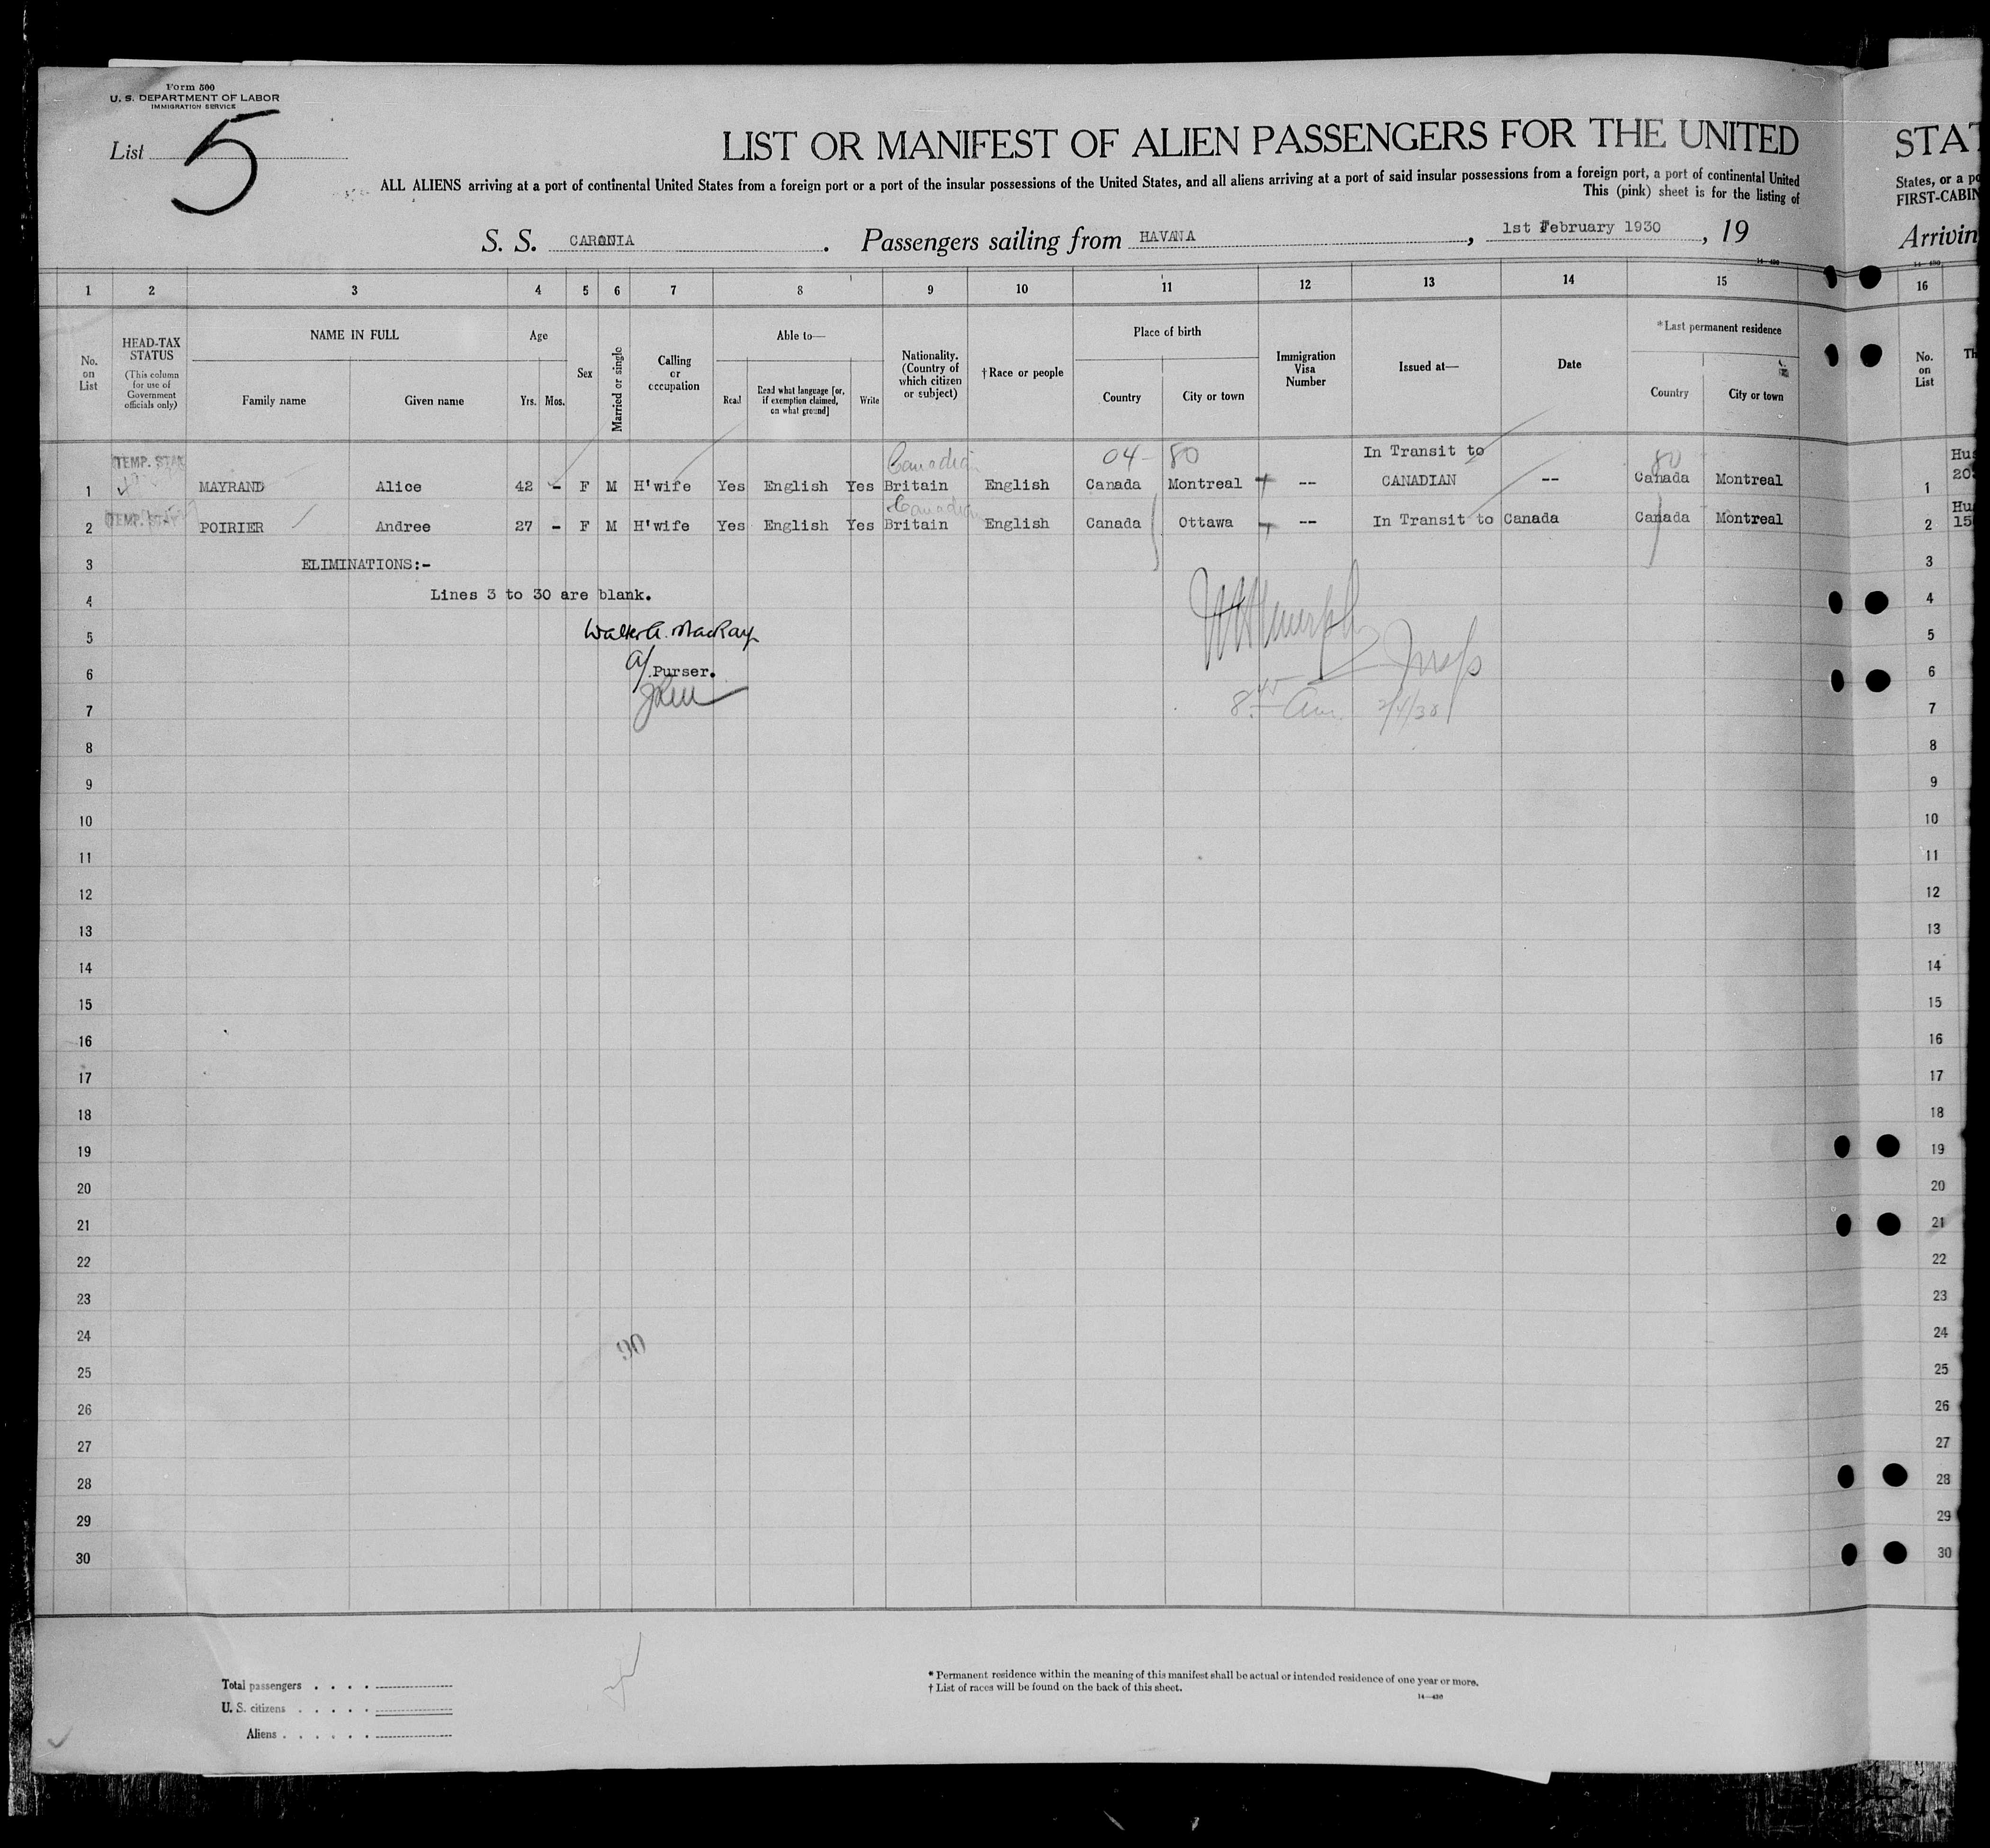 Form 500
U. S. DEPARTMENT OF LABOR
IMMIGRATION SERVICE
List 5
LIST OR MANIFEST OF ALIEN PASSENGERS FOR THE UNITED
STAT
ALL ALIENS arriving at a port of continental United States from a foreign port or a port of the insular possessions of the United States, and all aliens arriving at a port of said insular possessions from a foreign port, a port of continental United
States, or a po
This (pink) sheet is for the listing of
FIRST-CABIN
S. S. CARONIA. Passengers sailing from HAVANA, 1st February 1930, 19
Arrivin
14—430
1 2 3 4 5 6 7 8 9 10 11 12 13 14 15 16
No. on List
HEAD-TAX STATUS
(This column for use of Government officials only)
NAME IN FULL
Family name Given name
Age
Yrs. Mos.
Sex
Married or single
Calling or occupation
Able to—
Read
Read what language [or, if exemption claimed, on what ground]
Write
Nationality. (Country of which citizen or subject)
†Race or people
Place of birth
Country City or town
Immigration Visa Number
Issued at—
Date
*Last permanent residence
Country City or town
No. on List
Th
TEMP. Canadian 04- 80 In Transit to 80 Hus
1 MAYRAND Alice 42 - F M H'wife Yes English Yes Britain English Canada Montreal -- CANADIAN -- Canada Montreal 1 20
TEMP. STAY Canadian Hu
2 POIRIER Andree 27 - F M H'wife Yes English Yes Britain English Canada Ottawa -- In Transit to Canada Canada Montreal 2 15
3 ELIMINATIONS:- 3
4 Lines 3 to 30 are blank. 4
5 Walter A. MacKay 5
6 a/ Purser. Insp 6
7 8.45 Am. 2/4/30 7
8 8
9 9
10 10
11 11
12 12
13 13
14 14
15 15
16 16
17 17
18 18
19 19
20 20
21 21
22 22
23 23
24 24
25 25
26 26
27 27
28 28
29 29
30 30
Total passengers . . . .
U. S. citizens . . . . .
Aliens . . . . . .
* Permanent residence within the meaning of this manifest shall be actual or intended residence of one year or more.
† List of races will be found on the back of this sheet.
14—430